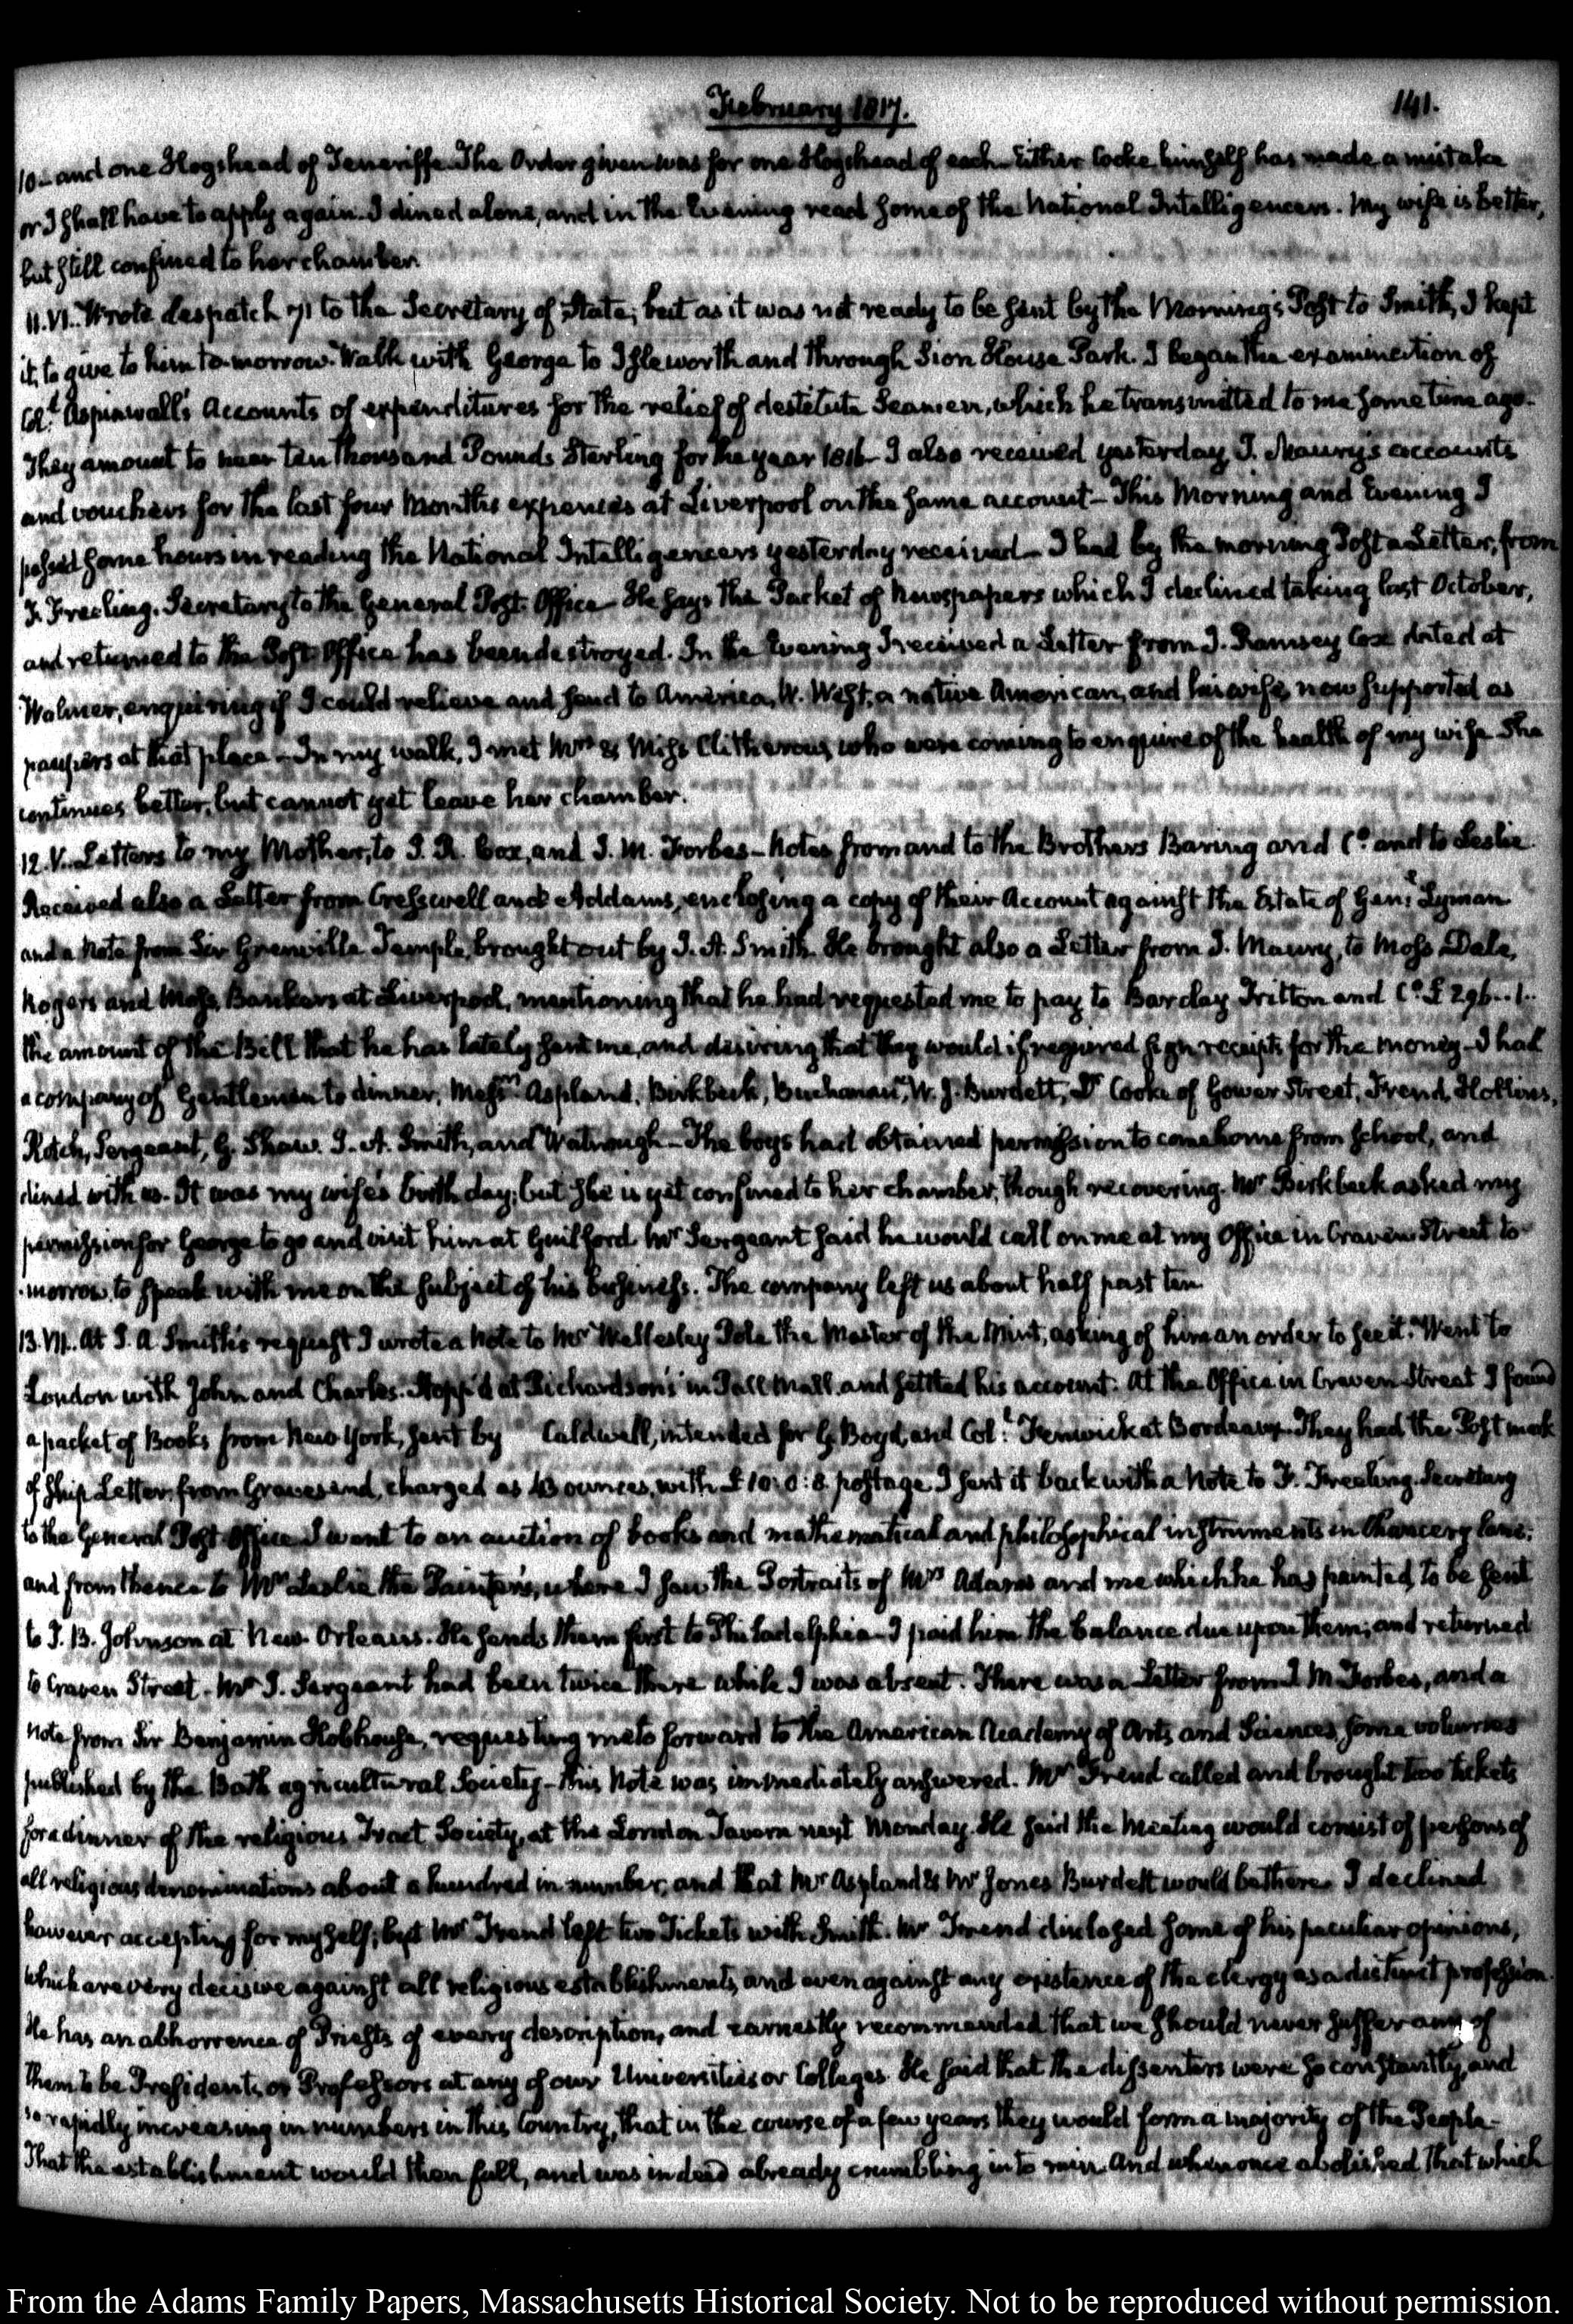 February 1817.
141.
10 – and one Hogshead of Teneriffe. The Order given was for one Hogshead of each – Either Cocke himself has made a mistake
or I shall have to apply again. I dined alone, and in the Evening read some of the National Intelligencers. My wife is better,
but still confined to her chamber.
11. VI.. Wrote despatch 71 to the Secretary of State; but as it was not ready to be sent by the Morning's Post to Smith, I kept
it, to give to him to-morrow. Walk with George to Isleworth and through Sion House Park. I began the examination of
Coll. Aspinwall's Accounts of expenditures for the relief of destitute Seamen, which he transmitted to me some time ago.
They amount to near ten thousand Pounds Sterling for the year 1816 – I also received yesterday J. Maury's accounts
and vouchers for the last four Months expences at Liverpool on the same account – This Morning and Evening I
passed some hours in reading the National Intelligencers yesterday received – I had by the morning Post a Letter, from
F. Freeling. Secretary to the General Post-Office – He says the Packet of Newspapers which I declined taking last October,
and returned to the Post-Office has been destroyed. In the Evening I received a Letter from J. Ramsey Cox dated at
Walmer, enquiring if I could relieve and send to America, W. West, a native American, and his wife, now supported as
paupers at that place – In my walk, I met Mrs. & Miss Clitherow, who were coming to enquire of the health of my wife She
continues better, but cannot yet leave her chamber.
12. V.. Letters to my Mother, to J. R. Cox, and J. M. Forbes – Notes from and to the Brothers Baring and Co. and to Leslie.
Received also a Letter from Cresswell and Addams, enclosing a copy of their Account against the Estate of Genl. Lyman
and a Note from Sir Grenville Temple, brought out by J. A. Smith. He brought also a Letter from J. Maury, to Moss, Dale,
Rogers and Moss, Bankers at Liverpool, mentioning that he had requested me to pay to Barclay Tritton and Co. £296..1..
the amount of the Bill that he has lately sent me, and desiring that they would if required sign receipts for the money – I had
a company of Gentlemen to dinner, Messrs. Aspland, Birkbeck, Buchanan, W. J. Burdett, Dr Cooke of Gower Street, Frend, Hollins,
Rotch, Sergeant, G. Shaw. J. A. Smith, and Watnough – The boys had obtained permission to come home from school, and
dined with us. It was my wife's birth day; but she is yet confined to her chamber, though recovering. Mr Birkbeck asked my
permission for George to go and visit him at Guilford Mr Sergeant said he would call on me at my Office in Craven Street to-
morrow, to speak with me on the subject of his business. The company left us about half past ten
13. VII.. At J. A Smith's request I wrote a Note to Mr Wellesley Pole the Master of the Mint, asking of him an order to see it. Went to
London with John and Charles. Stopp'd at Richardson's in Pall Mall, and settled his account. At the Office in Craven Street I found
a packet of Books from New York, sent by Caldwell, intended for G. Boyd, and Coll. Fenwick at Bordeaux. They had the Post mark
of Ship Letter, from Gravesend, charged as 43 ounces, with £10:0:8. postage I sent it back with a Note to F. Freeling. Secretary
to the General Post-Office I went to an auction of books and mathematical and philosophical instruments in Chancery lane;
and from thence to Mr Leslie the Painter's, where I saw the Portraits of Mrs Adams and me which he has painted, to be sent
to T. B. Johnson at New-Orleans. He sends them first to Philadelphia – I paid him the balance due upon them; and returned
to Craven Street. Mr J. Sergeant had been twice there while I was absent. There was a Letter from J M Forbes, and a
Note from Sir Benjamin Hobhouse, requesting me to forward to the American Academy of Arts and Sciences, some volumes
published by the Bath agricultural Society – this Note was immediately answered. Mr Frend called and brought two tickets
for a dinner of the religious Tract Society, at the London Tavern next Monday. He said the Meeting would consist of persons of
all religious denominations about a hundred in number, and that Mr Aspland & Mr Jones Burdett would be there. I declined
however accepting for myself; but Mr Frend left two Tickets with Smith. Mr Frend disclosed some of his peculiar opinions,
which are very decisive against all religious establishments, and even against any existence of the clergy as a distinct profession.
He has an abhorrence of Priests of every description, and earnestly recommended that we should never suffer any of
them to be Presidents, or Professors at any of our Universities or Colleges. He said that the dissenters were so constantly, and
so rapidly increasing in numbers in this Country, that in the course of a few years they would form a majority of the People –
That the establishment would then fall, and was indeed already crumbling into ruin. And when once abolished that which
From the Adams Family Papers, Massachusetts Historical Society. Not to be reproduced without permission.